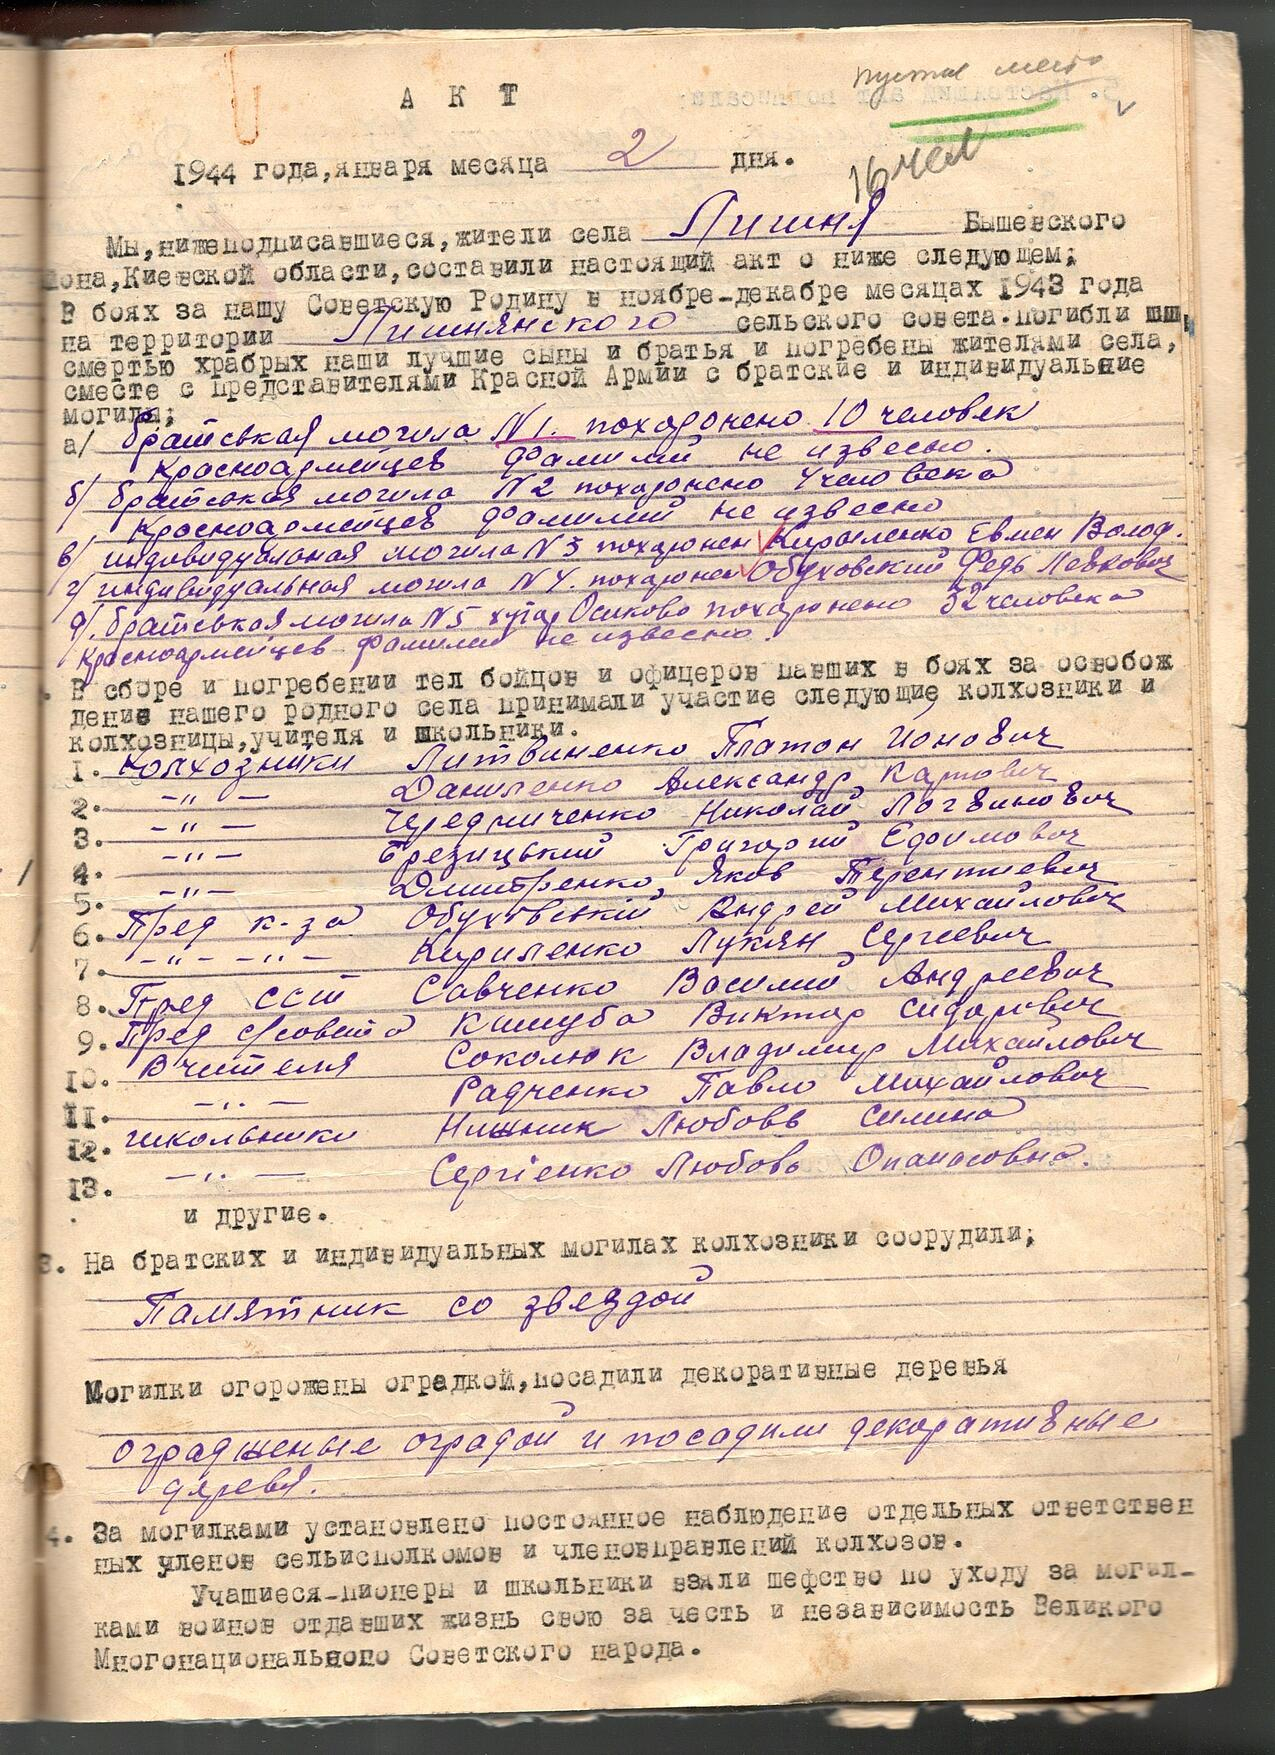 пустое место
АКТ
16 чел
1944 года, января месяца 2 дня.
Мы, нижеподписавшиеся, жители села Лишня Бышевского
она, Киевской области, составили настоящий акт о ниже следующем;
В боях за нашу Советскую Родину в ноябре-декабре месяцах 1943 года
на территории Лишнянского сельского совета. Погибли
смертью храбрых наши лучшие сыны и братья и погребены жителями села,
сместе с представителями Красной Армии с братские и индивидуальные
могилы;
а/ братськая могила N 1. похоронено 10 человек
Красноармейцев фамилий не извесно.
б/ братськая могила N 2 похоронено 4 человека
Красноармейцев фамилий не извесно
в/ индивидуальная могила N 3 похоронен Кириленко Евмен Волод.
г/ индивидуальная могила N 4. похоронен Обуховский Федь Левкович
д/. братськая могила N 5 хутор Осиково похоронено 32 человека
Красноармейцев фамилии не извесно.
. В сборе и погребении тел бойцов и офицеров павших в боях за освобож
дение нашего родного села принимали участие следующие колхозники и
колхозницы, учителя и школьники.
1. Колхозники Литвиненко Платон Ионович
2. -"- Даниленко Александр Карпович
3. -"- Чередниченко Николай Логвинович
4. -"- Брезицький Григорий Ефимович
5. -"- Дмитренко Яков Терентиевич
6. Пред к-за Обухівский Андрей Михайлович
7. -"- -"- Кириленко Лукян Сергеевич
8. Пред ССТ Савченко Василий Андреевич
9. Пред с/совета Кишуба Виктор Сидорович
10. Вчителя Соколюк Владимир Михайлович
11. -"- Радченко Павло Михайлович
12. школьники Нишник Любовь Силина
13. -"- Сергіенко Любовь Опанасовна.
и другие.
3. На братских и индивидуальных могилах колхозники соорудили;
Памятник со звездой
Могилки огорожены оградкой, посадили декоративные деревья
оградженые оградой и посадили декоративные
деревя.
4. За могилками установлено постоянное наблюдение отдельных ответствен
ных членов сельисполкомов и членовправлений колхозов.
Учащиеся-пионеры и школьники взяли шефство по уходу за могил-
ками воинов отдавших жизнь свою за честь и независимость Великого
Многонационального Советского народа.